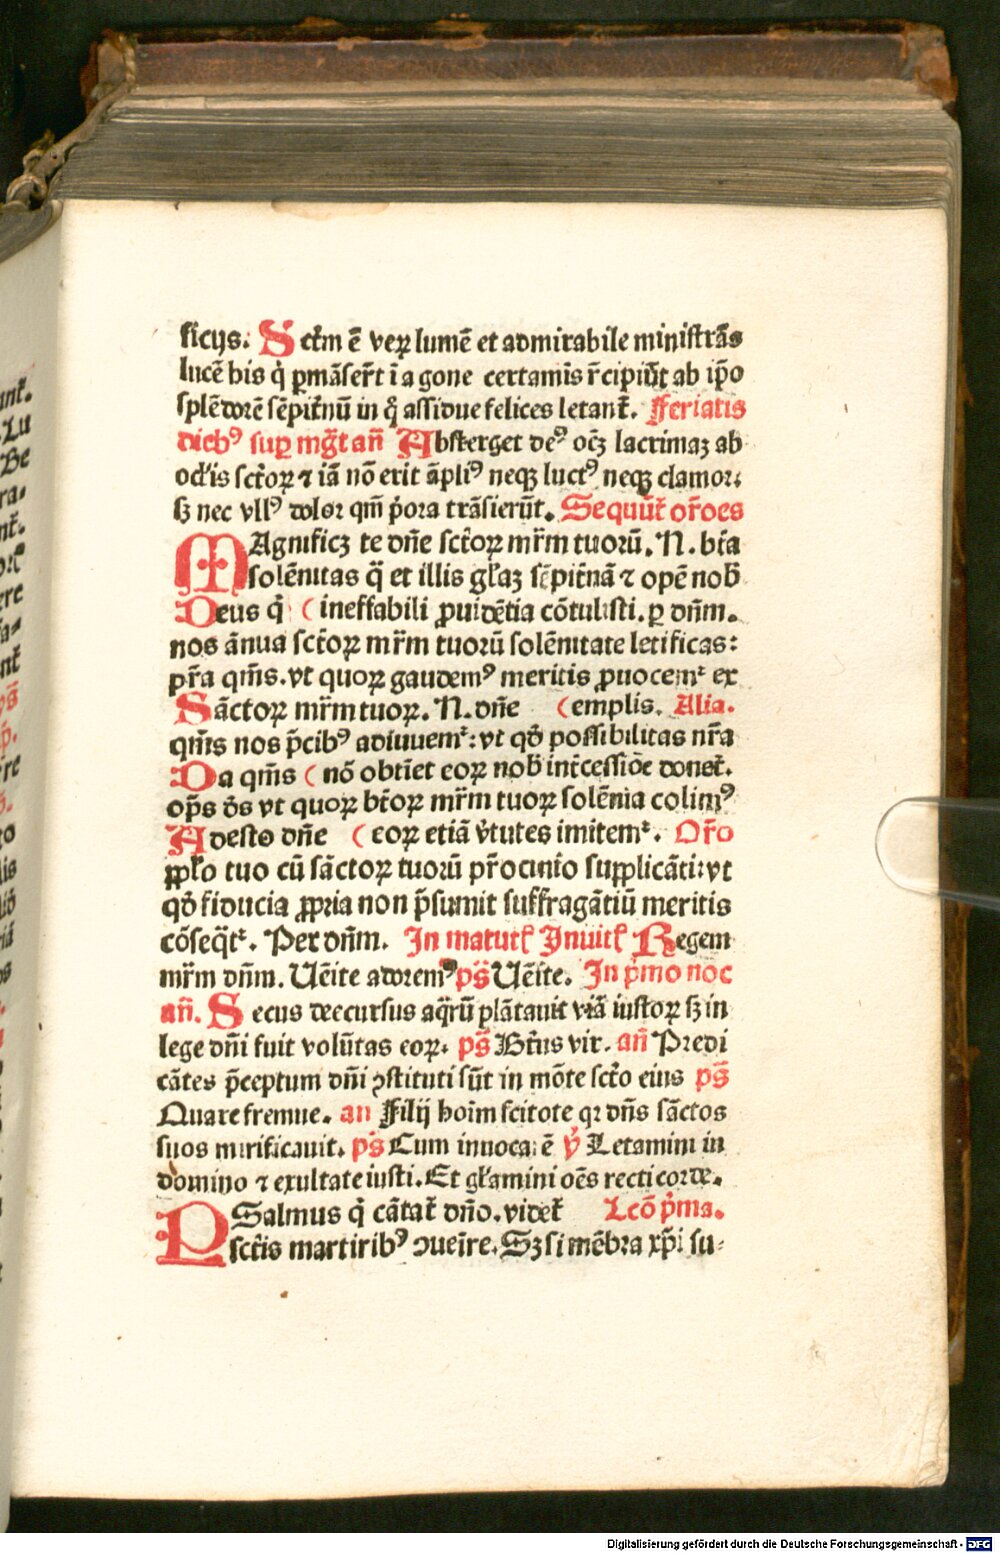 ficijs. Sctm̄ ē veꝝ lumē et admirabile ministrās
lucē his q̇ ꝑmāserȓt ī agone certamīs r̄cipiūt ab ip̄o
splēdorē sēpitȓnū in q̄ assidue felices letant᷑. Fferiatis
dieb⁹ suꝑ mḡt an̄ Absterget de⁹ oēꝫ lacrimaꝫ ab
ocl̓is sctȏꝝ ⁊ iā nō erit āpli⁹ neqꝫ luct⁹ neqꝫ clamor:
sꝫ nec vll⁹ dolor qm̄ p̓ora trāsierūt. Sequūt᷑ or̄oes
Magnificꝫ te dn̄e sctȏꝝ mr̄m tuorū. N. btā
solēnitas q̄ et illis gl̓aꝫ sēpitn̄ā ⁊ opē nob̄
Deus q̇ ( ineffabili ꝓuidētia cōtulisti. ꝑ dn̄m.
nos ānua sctȏꝝ mr̄m tuorū solēnitate letificas:
pr̄a qm̄s. vt quoꝝ gaudem⁹ meritis ꝓuocem᷑ ex
Sāctoꝝ mr̄m tuoꝝ. N. dn̄e ( emplis. Alia.
qm̄s nos p̄cib⁹ adiuuem᷑: vt qd̓ possibilitas nr̄a
Da qm̄s ( nō obtīet eoꝝ nob̄ int̄cessiōe donet᷑.
op̄s ds̄ vt quoꝝ btȏꝝ mr̄m tuoꝝ solēnia colim⁹
Adesto dn̄e ( eoꝝ etiā v̓tutes imitem᷑. Or̄o
ppl̓o tuo cū sāctoꝝ tuorū pr̄ocinio supplicāti: vt
qd̓ fiducia ꝓpria non p̄sumit suffragātiū meritis
cōseqt᷑. Per dn̄m. In matut᷑ Inuit᷑ Regem
mr̄m dn̄m. Uēite adorem⁹ ps̄ Uēite. In p̓mo noc
an̄. Secus decursus aq̄rū plātauit viā iustoꝝ sꝫ in
lege dn̄i fuit volūtas eoꝝ. ps̄ Btn̄s vir. an̄ Predi
cātes p̄ceptum dn̄i ꝯstituti sūt in mōte sctȏ eius ps̄
Quare fremue. an Filij hoīm scitote qꝛ dn̄s sāctos
suos mirificauit. ps̄ Cum inuocarē v̓ Letamini in
domino ⁊ exultate iusti. Et gl̓amini oēs recti corde.
PSalmus q̇ cātat᷑ dn̄o. videt᷑ Lcō p̓ma.
sctīs martirib⁹ ꝯueīre. Sꝫ si mēbra xp̄i su-
Digitalisierung gefördert durch die Deutsche Forschungsgemeinschaft - DFG